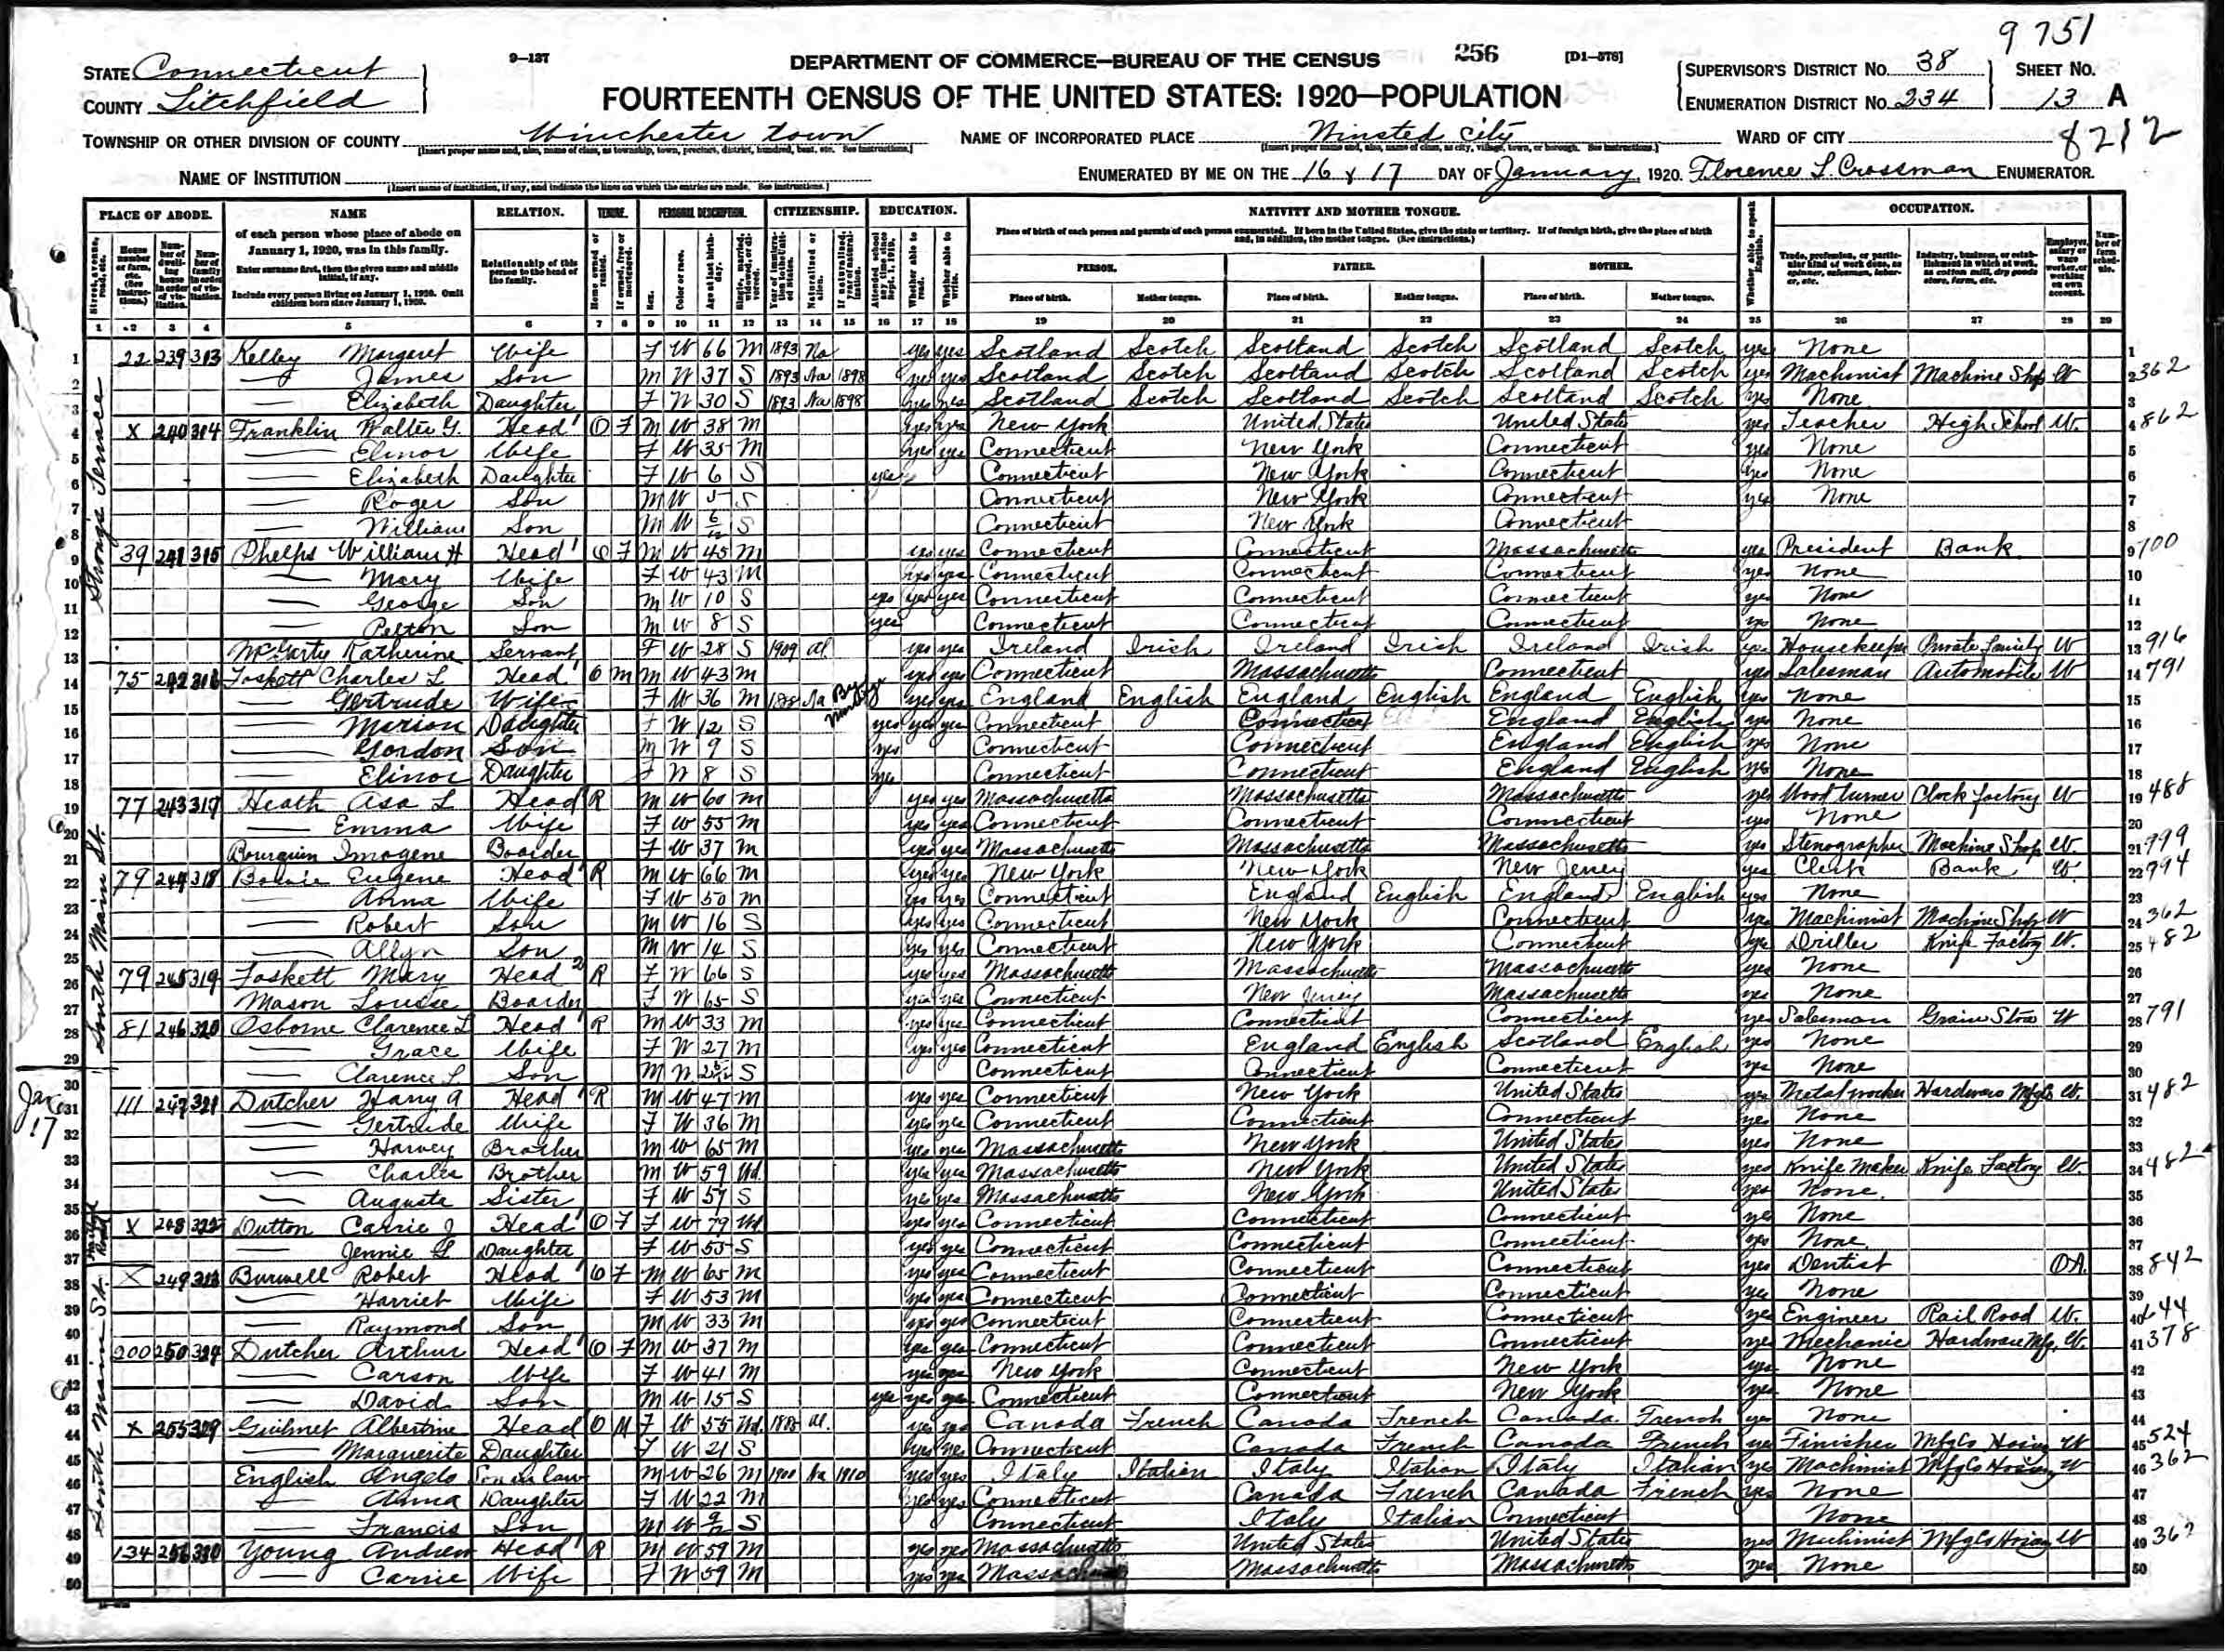 9751
STATE Connecticut
COUNTY Litchfield
9—137
DEPARTMENT OF COMMERCE—BUREAU OF THE CENSUS
256
[D1—578]
FOURTEENTH CENSUS OF THE UNITED STATES: 1920—POPULATION
SUPERVISOR'S DISTRICT No. 38
ENUMERATION DISTRICT No. 234
SHEET No. 13 A
8212
TOWNSHIP OR OTHER DIVISION OF COUNTY Winchester town
NAME OF INCORPORATED PLACE Winsted City
WARD OF CITY
NAME OF INSTITUTION
[Insert name of institution, if any, and indicate the lines on which the entries are made. See instructions.]
ENUMERATED BY ME ON THE 16 & 17 DAY OF January, 1920. Florence L. Crossman ENUMERATOR.
PLACE OF ABODE. NAME RELATION. TENURE. PERSONAL DESCRIPTION. CITIZENSHIP. EDUCATION. NATIVITY AND MOTHER TONGUE. OCCUPATION.
of each person whose place of abode on January 1, 1920, was in this family.
Enter surname first, then the given name and middle initial, if any.
Include every person living on January 1, 1920. Omit children born since January 1, 1920.
Relationship of this person to the head of the family.
Place of birth of each person and parents of each person enumerated. If born in the United States, give the state or territory. If of foreign birth, give the place of birth and, in addition, the mother tongue. (See instructions.)
PERSON. FATHER. MOTHER.
Place of birth. Mother tongue. Place of birth. Mother tongue. Place of birth. Mother tongue.
1 2 3 4 5 6 7 8 9 10 11 12 13 14 15 16 17 18 19 20 21 22 23 24 25 26 27 28 29
Strong's Terrace
1 22 239 313 Kelley Margaret Wife F W 66 M 1893 Na yes yes Scotland Scotch Scotland Scotch Scotland Scotch yes None 1
2 — James Son M W 37 S 1893 Na 1898 yes yes Scotland Scotch Scotland Scotch Scotland Scotch yes Machinist Machine Shop W 2 362
3 — Elizabeth Daughter F W 30 S 1893 Na 1898 yes yes Scotland Scotch Scotland Scotch Scotland Scotch yes None 3
4 X 240 314 Franklin Walter G. Head O F M W 38 M yes yes New York United States United States yes Teacher High School W. 4 862
5 — Elinor Wife F W 35 M yes yes Connecticut New York Connecticut yes None 5
6 — Elizabeth Daughter F W 6 S yes Connecticut New York Connecticut yes None 6
7 — Roger Son M W 5 S Connecticut New York Connecticut yes None 7
8 — William Son M W 6/12 S Connecticut New York Connecticut 8
9 39 241 315 Phelps William H Head O F M W 45 M yes yes Connecticut Connecticut Massachusetts yes President Bank 9 700
10 — Mary Wife F W 43 M yes yes Connecticut Connecticut Connecticut yes None 10
11 — George Son M W 10 S yes yes yes Connecticut Connecticut Connecticut yes None 11
12 — Pelton Son M W 8 S yes Connecticut Connecticut Connecticut yes None 12
13 McGarty Katherine Servant F W 28 S 1909 Al yes yes Ireland Irish Ireland Irish Ireland Irish yes Housekeeper Private Family W 13 916
South Main St.
14 75 242 316 Foskett Charles L Head O M M W 43 M yes yes Connecticut Massachusetts Connecticut yes Salesman Automobile W 14 791
15 — Gertrude Wife F W 36 M 1888 Na By marriage yes yes England English England English England English yes None 15
16 — Marion Daughter F W 12 S yes yes yes Connecticut Connecticut England English yes None 16
17 — Gordon Son M W 9 S yes Connecticut Connecticut England English yes None 17
18 — Elinor Daughter F W 8 S yes Connecticut Connecticut England English yes None 18
19 77 243 317 Heath Asa L Head R M W 60 M yes yes Massachusetts Massachusetts Massachusetts yes Wood turner Clock factory W 19 488
20 — Emma Wife F W 55 M yes yes Connecticut Connecticut Connecticut yes None 20
21 Bourquin Imogene Boarder F W 37 M yes yes Massachusetts Massachusetts Massachusetts yes Stenographer Machine Shop W. 21 999
22 79 244 318 Eugene Head R M W 66 M yes yes New York New York New Jersey yes Clerk Bank W. 22 994
23 — Anna Wife F W 50 M yes yes Connecticut England English England English yes None 23
24 — Robert Son M W 16 S yes yes Connecticut New York Connecticut yes Machinist Machine Shop W 24 362
25 — Allyn Son M W 14 S yes yes Connecticut New York Connecticut yes Driller Knife Factory W. 25 482
26 79 245 319 Foskett Mary Head 2 R F W 66 S yes yes Massachusetts Massachusetts Massachusetts yes None 26
27 Mason Louise Boarder F W 65 S yes yes Connecticut New Jersey Massachusetts yes None 27
28 81 246 320 Osborne Clarence L Head R M W 33 M yes yes Connecticut Connecticut Connecticut yes Salesman Grain Store W 28 791
29 — Grace Wife F W 27 M yes yes Connecticut England English Scotland English yes None 29
30 — Clarence L. Son M W S Connecticut Connecticut Connecticut yes None 30
Jan 17
31 111 247 321 Dutcher Harry A Head R M W 47 M yes yes Connecticut New York United States yes Metal worker Hardware Mfg Co W. 31 482
32 — Gertrude Wife F W 36 M yes yes Connecticut Connecticut Connecticut yes None 32
33 — Harvey Brother M W 65 M yes yes Massachusetts New York United States yes None 33
34 — Charles Brother M W 59 Wd. yes yes Massachusetts New York United States yes Knife Maker Knife Factory W. 34 482
35 — Augusta Sister F W 57 S yes yes Massachusetts New York United States yes None 35
36 X 248 322 Dutton Carrie J Head O F F W 79 Wd yes yes Connecticut Connecticut Connecticut yes None 36
37 — Jennie L Daughter F W 55 S yes yes Connecticut Connecticut Connecticut yes None 37
South Main St.
38 X 249 323 Burwell Robert Head O F M W 65 M yes yes Connecticut Connecticut Connecticut yes Dentist OA. 38 842
39 — Harriet Wife F W 53 M yes yes Connecticut Connecticut Connecticut yes None 39
40 — Raymond Son M W 33 M yes yes Connecticut Connecticut Connecticut yes Engineer Rail Road W. 40 644
41 200 250 324 Dutcher Arthur Head O F M W 37 M yes yes Connecticut Connecticut Connecticut yes Mechanic Hardware Mfg. W. 41 378
42 — Carson Wife F W 41 M yes yes New York Connecticut New York yes None 42
43 — David Son M W 15 S yes yes yes Connecticut Connecticut New York yes None 43
44 X 255 329 Guilmet Albertine Head O M F W 55 Wd. 1885 Al. yes yes Canada French Canada French Canada French yes None 44
45 — Marguerite Daughter F W 21 S yes yes Connecticut Canada French Canada French yes Finisher Mfg Co Hosiery W 45 524
46 English Angelo Son in law M W 26 M 1900 Na 1910 yes yes Italy Italian Italy Italian Italy Italian yes Machinist Mfg Co Hosiery W 46 362
47 — Anna Daughter F W 22 M yes yes Connecticut Canada French Canada French yes None 47
48 — Francis Son M W 9/12 S Connecticut Italy Italian Connecticut None 48
49 134 256 330 Young Andrew Head R M W 59 M yes yes Massachusetts United States United States yes Machinist Mfg Co Hosiery W 49 362
50 — Carrie Wife F W 59 M yes yes Massachusetts Massachusetts Massachusetts yes None 50